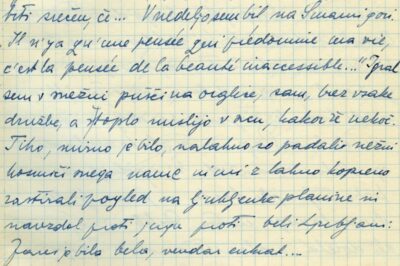 biti srečen, če... V nedeljo sem bil na Šmarni gori.
"Il n'ya qu'une pensée qui prédomine ma vie,
c'est la pensée de la beauté inaccessible..." Igral
sem v snežni pušči na orglice, sam, brez vsake
družbe, a s toplo mislijo v srcu, kakor že nekoč.
Tiho, mirno je bilo, nalahno so padali snežni
kosmiči mimo mene in mi z lahno kopreno
zastirali pogled na ljubljenke planine in
navzdol proti jugu proti beli Ljubljani:
Zares je bila bela, vendar enkrat...